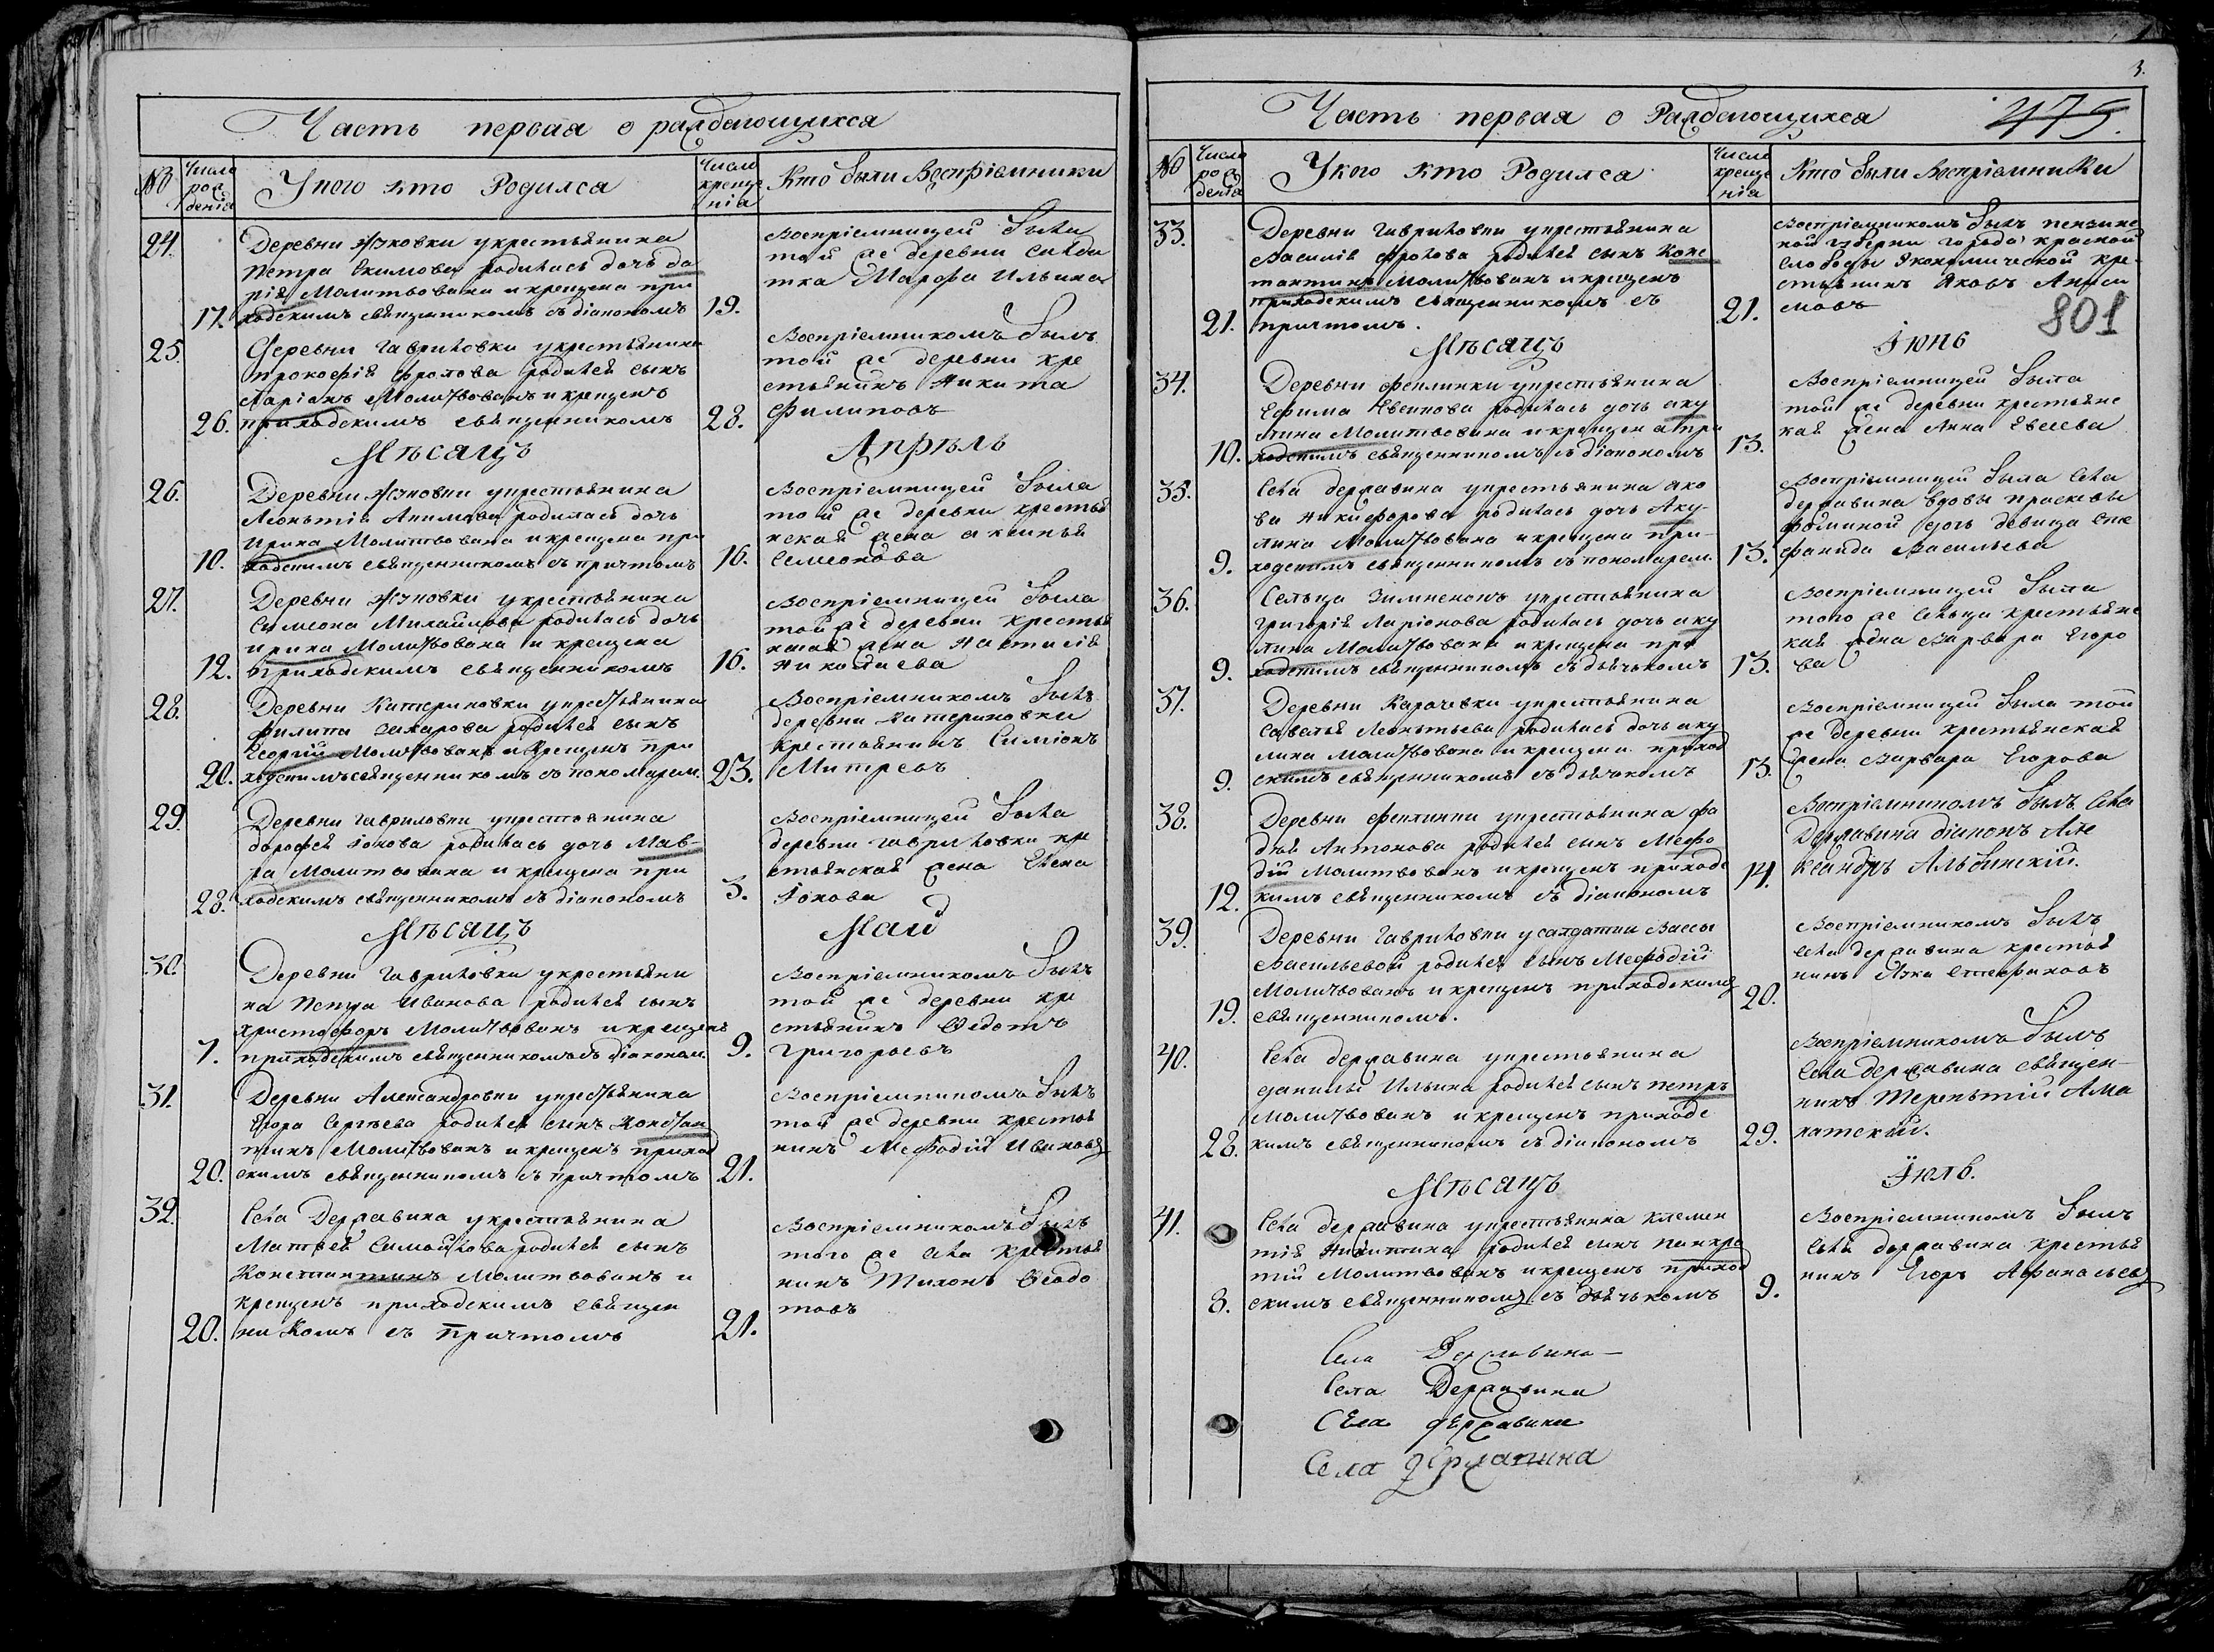 Часть первая о раждающихся
№
Число рождения
У кого кто Родился
Число крещения
Кто были Воспріемники
24.
Деревни Жуковки укрестьянина
Петра Екимова родилась дочь Да
рія Молитвована и крещена при
17. ходскимъ священникомъ съ діакономъ 19.
Воспріемницей была
той же деревни салда
тка Марфа Ильина
25.
Деревни Гавриловки укрестьянина
Прокофія Фролова родился сынъ
Ларіонъ Молитвованъ и крещенъ
26. приходскимъ священникомъ 28.
Воспріемникомъ былъ
той же деревни кре
стьянинъ Никита
Филиповъ
Мѣсяцъ Апрѣль
26.
Деревни Жуковки укрестьянина
Леонтія Акимова родилась дочь
Ирина Молитвована и крещена при
10. ходскимъ священникомъ съ причтомъ 16.
Воспріемницей была
той же деревни крестья
нская жена Аксинья
Семеонова
27.
Деревни Жуковки укрестьянина
Симеона Михайлова родилась дочь
Ирина Молитвована и крещена
12. приходскимъ священникомъ 16.
Воспріемницей была
той же деревни крестья
нская жена Настасія
Николаева
28.
Деревни Катериновки укрестьянина
Филипа Захарова родился сынъ
Георгій Молитвованъ и крещенъ при
20. ходскимъ священникомъ съ пономарем. 23.
Воспріемникомъ былъ
деревни Катериновки
крестьянинъ Симіонъ
Митревъ
29.
Деревни Гавриловки укрестьянина
Дорофея Іонова родилась дочь Мав-
ра Молитвована и крещена при
28. ходскимъ священникомъ съ діакономъ 3.
Воспріемницей была
деревни Гавриловки кре
стьянская жена Елена
Іонова
Мѣсяцъ Май
30.
Деревни Гавриловки укрестьяни
на Петра Иванова родился сынъ
Христофоръ Молитвованъ и крещенъ
7. приходскимъ священникомъ съ діаконом. 9.
Воспріемникомъ былъ
той же деревни кре
стьянинъ Федотъ
Григорьевъ
31.
Деревни Александровки укрестьянина
Егора Сергѣева родился сынъ Констан
тинъ Молитвованъ и крещенъ приход
20. скимъ священникомъ съ причтомъ 21.
Воспріемникомъ былъ
той же деревни крестья
нинъ Мефодій Ивановъ
32.
Села Державина укрестьянина
Матвея Самойлова родился сынъ
Константинъ Молитвованъ и
крещенъ приходскимъ священ
20. никомъ съ причтомъ 21.
Воспріемникомъ былъ
того же села крестья
нинъ Тихонъ Феодо
товъ
3.
Часть первая о Раждающихся 475.
№
Число рождения
У кого кто Родился
Число крещенія
Кто были Воспріемники
33.
Деревни Гавриловки укрестьянина
Василія Фролова родился сынъ Конс
тантинъ Молитвованъ и крещенъ
приходскимъ священникомъ съ
21. причтомъ. 21.
Воспріемникомъ былъ пензинс
кой губерни города Красной
Слободы Экономической кре
стьянинъ Яковъ Аниси
мовъ
801
Мѣсяцъ Іюнь
34.
Деревни Феклинки укрестьянина
Ефима Евсикова родилась дочь Аку
лина Молитвована и крещена при
10. ходскимъ священникомъ съ діакономъ 13.
Воспріемницей была
той же деревни крестьянс
кая жена Анна Евсева
35.
Села державина укрестьянина Яко
ва Никифорова родилась дочь Аку-
лина Молитвована и крещена при-
9. ходскимъ священникомъ съ пономарем. 13.
Воспріемницей была Села
державина вдовы Прасковьи
Фоминой дочь девица Сте
фанида Васильева
36.
Сельца Зимненокъ укрестьянина
Григорія Ларіонова родилась дочь Аку
лина Молитвована и крещена при
9. ходскимъ священникомъ съ дьячькомъ 13.
Воспріемницей была
того же сельца крестьянс
кая жена Варвара Егоро
ва
37.
Деревни Карачевки укрестьянина
Савелья Леонтьева родилась дочь Аку
лина Молитвована и крещена приход
9. скимъ священникомъ съ дьячкомъ 13.
Воспріемницей была той
же деревни крестьянская
жена Варвара Егорова
38.
Деревни Феклинки укрестьянина Фа
дѣя Антонова родился сынъ Мефо
дій Молитвованъ и крещенъ приходс
12. кимъ священникомъ съ діакономъ 14.
Воспріемникомъ былъ Села
Державина діаконъ Але
ксандръ Альбинскій.
39.
Деревни Гавриловки у салдатки Вассы
Васильевой родился сынъ Мефодій
Молитвованъ и крещенъ приходскимъ
19. священникомъ. 20.
Воспріемникомъ былъ
Села державина крестья
нинъ Лука Стефановъ
40.
Села державина укрестьянина
Данилы Ильина родился сынъ Петръ
Молитвованъ и крещенъ приходс
28. кимъ священникомъ съ діакономъ 29.
Воспріемникомъ былъ
Села державина священ-
никъ Терентій Ама
натскій.
Мѣсяцъ Іюль.
41.
Села державина укрестьянина Клемен
тія Никитина родился сынъ Панкра
тій Молитвованъ и крещенъ приход
8. скимъ священникомъ съ дьячькомъ 9.
Воспріемникомъ былъ
Села державина крестья
нинъ Егоръ Афанасьевъ
Села Державина
Села Державина
Села державина
Села державина